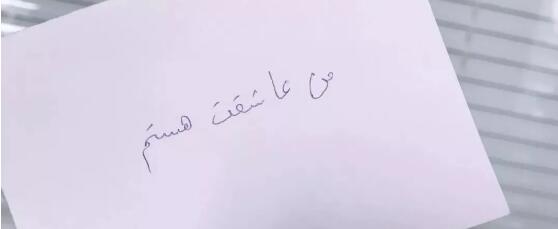 من عاشقت هستم